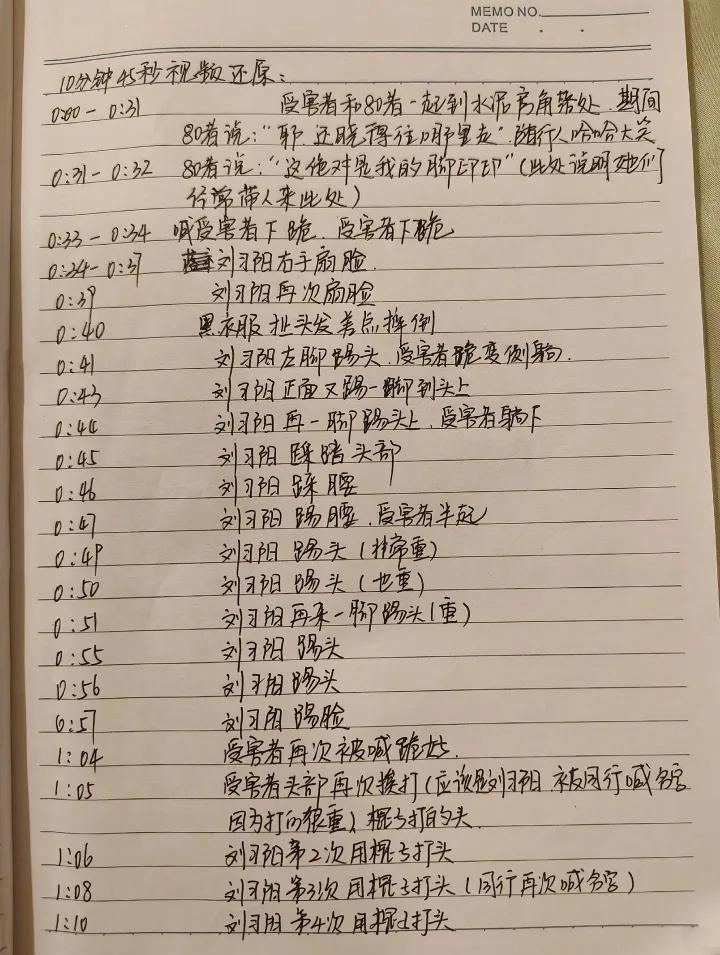 MEMO NO.
DATE . .
10分钟45秒视频还原：
0:00 - 0:31 受害者和80者一起到水泥房角落处，期间
80者说：“耶，还晓得往哪里走”随行人哈哈大笑
0:31 - 0:32 80者说：“这绝对是我的脚印印”（此处说明她们
经常带人来此处）
0:33 - 0:34 喊受害者下跪，受害者下跪
0:34 - 0:37 刘习阳右手扇脸.
0:39 刘习阳再次扇脸
0:40 黑衣服扯头发差点摔倒
0:41 刘习阳左脚踢头，受害者跪变侧躺.
0:43 刘习阳正面又踢一脚到头上
0:44 刘习阳再一脚踢头上，受害者躺下
0:45 刘习阳踩踏头部
0:46 刘习阳踩腰
0:47 刘习阳踢腰，受害者半起
0:49 刘习阳踢头（非常重）
0:50 刘习阳踢头（也重）
0:51 刘习阳再来一脚踢头（重）
0:55 刘习阳踢头
0:56 刘习阳踢头
0:57 刘习阳踢脸
1:04 受害者再次被喊跪好.
1:05 受害者头部再次挨打（应该是刘习阳，被同行喊名字
因为打的很重），棍子打的头.
1:06 刘习阳第2次用棍子打头
1:08 刘习阳第3次用棍子打头（同行再次喊名字）
1:10 刘习阳第4次用棍子打头